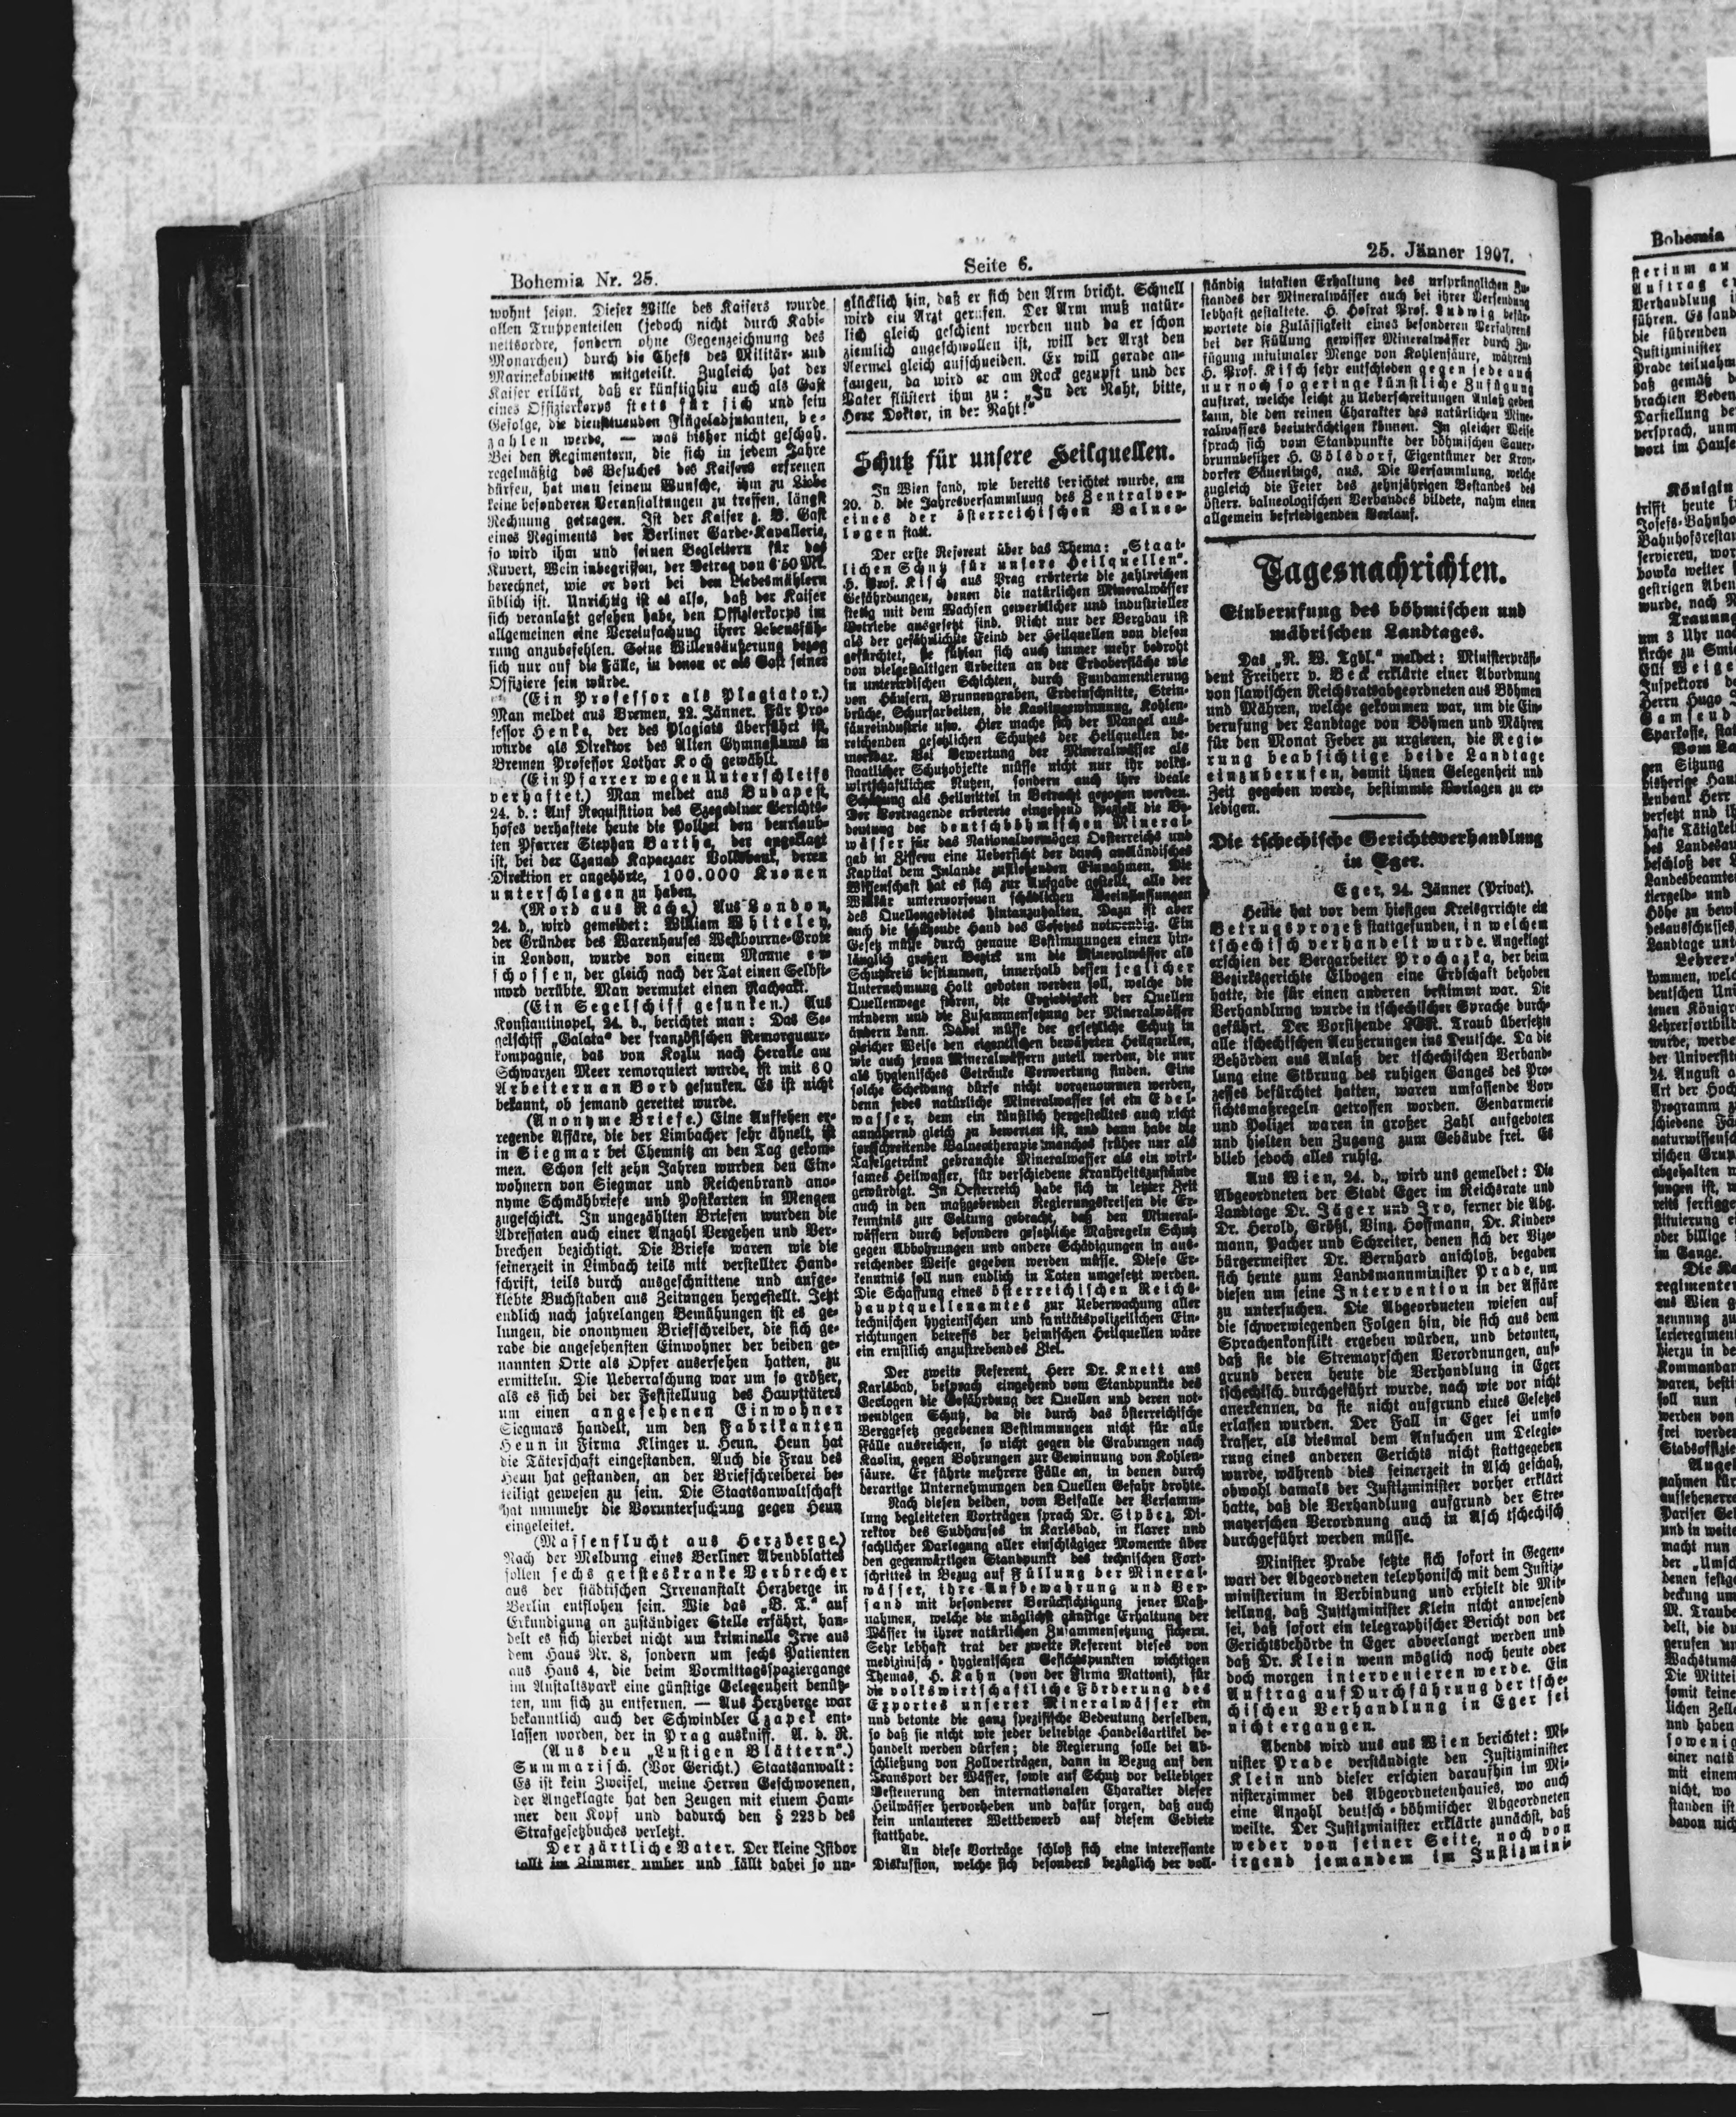 Bohemia Nr. 25.
Seite 6.
25. Jänner 1907.
wohnt seien. Dieser Wille des Kaisers wurde
allen Truppenteilen (jedoch nicht durch Kabi-
nettsordre, sondern ohne Gegenzeichnung des
Monarchen) durch die Chefs des Militär- und
Marinekabinetts mitgeteilt. Zugleich hat der
Kaiser erklärt, daß er künftighin auch als Gast
eines Offizierkorps stets für sich und sein
Gefolge, die diensttuenden Flügeladjutanten, be-
zahlen werde, — was bisher nicht geschah.
Bei den Regimentern, die sich in jedem Jahre
regelmäßig des Besuches des Kaisers erfreuen
dürfen, hat man seinem Wunsche, ihm zu Liebe
keine besonderen Veranstaltungen zu treffen, längst
Rechnung getragen. Ist der Kaiser z. B. Gast
eines Regiments der Berliner Garde-Kavallerie,
so wird ihm und seinen Begleitern für das
Kuvert, Wein inbegriffen, der Betrag von 6·50 Mk.
berechnet, wie er dort bei den Liebesmählern
üblich ist. Unrichtig ist es also, daß der Kaiser
sich veranlaßt gesehen habe, den Offizierkorps im
allgemeinen eine Vereinfachung ihrer Lebensfüh-
rung anzubefehlen. Seine Willensäußerung bezog
sich nur auf die Fälle, in denen er als Gast seiner
Offiziere sein würde.
(Ein Professor als Plagiator.)
Man meldet aus Bremen, 22. Jänner. Für Pro-
fessor Henke, der des Plagiats überführt ist,
wurde als Direktor des Alten Gymnasiums in
Bremen Professor Lothar Koch gewählt.
(Ein Pfarrer wegen Unterschleifs
verhaftet.) Man meldet aus Budapest,
24. d.: Auf Requisition des Szegediner Gerichts-
hofes verhaftete heute die Polizei den beurlaub-
ten Pfarrer Stephan Bartha, der angeklagt
ist, bei der Czanad Kapaczaer Volksbank, deren
Direktion er angehörte, 100.000 Kronen
unterschlagen zu haben.
(Mord aus Rache.) Aus London,
24. d., wird gemeldet: William Whiteley,
der Gründer des Warenhauses Westbourne-Grove
in London, wurde von einem Manne er-
schossen, der gleich nach der Tat einen Selbst-
mord verübte. Man vermutet einen Racheakt.
(Ein Segelschiff gesunken.) Aus
Konstantinopel, 24. d., berichtet man: Das Se-
gelschiff „Galata“ der französischen Remorqueur-
kompagnie, das von Kozlu nach Heralle am
Schwarzen Meer remorquiert wurde, ist mit 60
Arbeitern an Bord gesunken. Es ist nicht
bekannt, ob jemand gerettet wurde.
(Anonyme Briefe.) Eine Aufsehen er-
regende Affäre, die der Limbacher sehr ähnelt, ist
in Siegmar bei Chemnitz an den Tag gekom-
men. Schon seit zehn Jahren wurden den Ein-
wohnern von Siegmar und Reichenbrand ano-
nyme Schmähbriefe und Postkarten in Mengen
zugeschickt. In ungezählten Briefen wurden die
Adressaten auch einer Anzahl Vergehen und Ver-
brechen bezichtigt. Die Briefe waren wie die
seinerzeit in Limbach teils mit verstellter Hand-
schrift, teils durch ausgeschnittene und aufge-
klebte Buchstaben aus Zeitungen hergestellt. Jetzt
endlich nach jahrelangen Bemühungen ist es ge-
lungen, die anonymen Briefschreiber, die sich ge-
rade die angesehensten Einwohner der beiden ge-
nannten Orte als Opfer ausersehen hatten, zu
ermitteln. Die Ueberraschung war um so größer,
als es sich bei der Feststellung des Haupttäters
um einen angesehenen Einwohner
Siegmars handelt, um den Fabrikanten
Heun in Firma Klinger u. Heun. Heun hat
die Täterschaft eingestanden. Auch die Frau des
Heun hat gestanden, an der Briefschreiberei be-
teiligt gewesen zu sein. Die Staatsanwaltschaft
hat nunmehr die Voruntersuchung gegen Heun
eingeleitet.
(Massenflucht aus Herzberge.)
Nach der Meldung eines Berliner Abendblattes
sollen sechs geisteskranke Verbrecher
aus der städtischen Irrenanstalt Herzberge in
Berlin entflohen sein. Wie das „B. T.“ auf
Erkundigung an zuständiger Stelle erfährt, han-
delt es sich hierbei nicht um kriminelle Irre aus
dem Haus Nr. 8, sondern um sechs Patienten
aus Haus 4, die beim Vormittagsspaziergange
im Anstaltspark eine günstige Gelegenheit benütz-
ten, um sich zu entfernen. — Aus Herzberge war
bekanntlich auch der Schwindler Czapek ent-
lassen worden, der in Prag auskniff. A. d. R.
(Aus den „Lustigen Blättern“.)
Summarisch. (Vor Gericht.) Staatsanwalt:
Es ist kein Zweifel, meine Herren Geschworenen,
der Angeklagte hat den Zeugen mit einem Ham-
mer den Kopf und dadurch den § 223 b des
Strafgesetzbuches verletzt.
Der zärtliche Vater. Der kleine Isidor
tollt im Zimmer umher und fällt dabei so un-
glücklich hin, daß er sich den Arm bricht. Schnell
wird ein Arzt gerufen. Der Arm muß natür-
lich gleich geschient werden und da er schon
ziemlich angeschwollen ist, will der Arzt den
Aermel gleich aufschneiden. Er will gerade an-
fangen, da wird er am Rock gezupft und der
Vater flüstert ihm zu: „In der Naht, bitte,
Herr Doktor, in der Naht!“
Schutz für unsere Heilquellen.
In Wien fand, wie bereits berichtet wurde, am
20. d. die Jahresversammlung des Zentralver-
eines der österreichischen Balneo-
logen statt.
Der erste Referent über das Thema: „Staat-
lichen Schutz für unsere Heilquellen“.
H. Prof. Kisch aus Prag erörterte die zahlreichen
Gefährdungen, denen die natürlichen Mineralwässer
stetig mit dem Wachsen gewerblicher und industrieller
Betriebe ausgesetzt sind. Nicht nur der Bergbau ist
als der gefährlichste Feind der Heilquellen von diesen
gefürchtet, sie fühlen sich auch immer mehr bedroht
von vielgestaltigen Arbeiten an der Erdoberfläche wie
in unterirdischen Schichten, durch Fundamentierung
von Häusern, Brunnengraben, Erdeinschnitte, Stein-
brüche, Schurfarbeiten, die Kaolingewinnung, Kohlen-
säureindustrie usw. Hier mache sich der Mangel aus-
reichenden gesetzlichen Schutzes der Heilquellen be-
merkbar. Bei Bewertung der Mineralwässer als
staatlicher Schutzobjekte müsse nicht nur ihr volks-
wirtschaftlicher Nutzen, sondern auch ihre ideale
Schätzung als Heilmittel in Betracht gezogen werden.
Der Vortragende erörterte eingehend speziell die Be-
deutung der deutschböhmischen Mineral-
wässer für das Nationalvermögen Oesterreichs und
gab in Ziffern eine Uebersicht der durch ausländisches
Kapital dem Inlande zufließenden Einnahmen. Die
Wissenschaft hat es sich zur Aufgabe gestellt, alle der
Willkür unterworfenen schädlichen Beeinflussungen
des Quellengebietes hintanzuhalten. Dazu ist aber
auch die schützende Hand des Gesetzes notwendig. Ein
Gesetz müsse durch genaue Bestimmungen einen hin-
länglich großen Bezirk um die Mineralwässer als
Schutzkreis bestimmen, innerhalb dessen jeglicher
Unternehmung Halt geboten werden soll, welche die
Quellenwege stören, die Ergiebigkeit der Quellen
mindern und die Zusammensetzung der Mineralwässer
ändern kann. Dabei müsse der gesetzliche Schutz in
gleicher Weise den eigentlichen bewährten Heilquellen,
wie auch jenen Mineralwässern zuteil werden, die nur
als hygienisches Getränke Verwertung finden. Eine
solche Scheidung dürfe nicht vorgenommen werden,
denn jedes natürliche Mineralwasser sei ein Edel-
wasser, dem ein künstlich hergestelltes auch nicht
annähernd gleich zu bewerten ist, und dann habe die
fortschreitende Balneotherapie manches früher nur als
Tafelgetränk gebrauchte Mineralwasser als ein wirk-
sames Heilwasser, für verschiedene Krankheitszustände
gewürdigt. In Oesterreich habe sich in letzter Zeit
auch in den maßgebenden Regierungskreisen die Er-
kenntnis zur Geltung gebracht, daß den Mineral-
wässern durch besondere gesetzliche Maßregeln Schutz
gegen Abbohrungen und andere Schädigungen in aus-
reichender Weise gegeben werden müsse. Diese Er-
kenntnis soll nun endlich in Taten umgesetzt werden.
Die Schaffung eines österreichischen Reichs-
hauptquellenamtes zur Ueberwachung aller
technischen hygienischen und sanitätspolizeilichen Ein-
richtungen betreffs der heimischen Heilquellen wäre
ein ernstlich anzustrebendes Ziel.
Der zweite Referent, Herr Dr. Knett aus
Karlsbad, besprach eingehend vom Standpunkte des
Geologen die Gefährdung der Quellen und deren not-
wendigen Schutz, da die durch das österreichische
Berggesetz gegebenen Bestimmungen nicht für alle
Fälle ausreichen, so nicht gegen die Grabungen nach
Kaolin, gegen Bohrungen zur Gewinnung von Kohlen-
säure. Er führte mehrere Fälle an, in denen durch
derartige Unternehmungen den Quellen Gefahr drohte.
Nach diesen beiden, vom Beifalle der Versamm-
lung begleiteten Vorträgen sprach Dr. Sipöcz, Di-
rektor des Sudhauses in Karlsbad, in klarer und
sachlicher Darlegung aller einschlägiger Momente über
den gegenwärtigen Standpunkt des technischen Fort-
schrittes in Bezug auf Füllung der Mineral-
wässer, ihre Aufbewahrung und Ver-
sand mit besonderer Berücksichtigung jener Maß-
nahmen, welche die möglichst günstige Erhaltung der
Wässer in ihrer natürlichen Zusammensetzung sichern.
Sehr lebhaft trat der zweite Referent dieses von
medizinisch-hygienischen Gesichtspunkten wichtigen
Themas, H. Kahn (von der Firma Mattoni), für
die volkswirtschaftliche Förderung des
Exportes unserer Mineralwässer ein
und betonte die ganz spezifische Bedeutung derselben,
so daß sie nicht wie jeder beliebige Handelsartikel be-
handelt werden dürfen; die Regierung solle bei Ab-
schließung von Zollverträgen, dann in Bezug auf den
Transport der Wässer, sowie auf Schutz vor beliebiger
Besteuerung den internationalen Charakter dieser
Heilwässer hervorheben und dafür sorgen, daß auch
kein unlauterer Wettbewerb auf diesem Gebiete
statthabe.
An diese Vorträge schloß sich eine interessante
Diskussion, welche sich besonders bezüglich der voll-
ständig intakten Erhaltung des ursprünglichen Zu-
standes der Mineralwässer auch bei ihrer Versendung
lebhaft gestaltete. H. Hofrat Prof. Ludwig befür-
wortete die Zulässigkeit eines besonderen Verfahrens
bei der Füllung gewisser Mineralwässer durch Zu-
fügung minimaler Menge von Kohlensäure, während
H. Prof. Kisch sehr entschieden gegen jede auch
nur noch so geringe künstliche Zufügung
auftrat, welche leicht zu Ueberschreitungen Anlaß geben
kann, die den reinen Charakter des natürlichen Mine-
ralwassers beeinträchtigen können. In gleicher Weise
sprach sich vom Standpunkte der böhmischen Sauer-
brunnbesitzer H. Gölsdorf, Eigentümer der Kron-
dorfer Säuerlings, aus. Die Versammlung, welche
zugleich die Feier des zehnjährigen Bestandes des
österr. balneologischen Verbandes bildete, nahm einen
allgemein befriedigenden Verlauf.
Tagesnachrichten.
Einberufung des böhmischen und
mährischen Landtages.
Das „N. W. Tgbl.“ meldet: Ministerpräsi-
dent Freiherr v. Beck erklärte einer Abordnung
von slawischen Reichsratsabgeordneten aus Böhmen
und Mähren, welche gekommen war, um die Ein-
berufung der Landtage von Böhmen und Mähren
für den Monat Feber zu urgieren, die Regie-
rung beabsichtige beide Landtage
einzuberufen, damit ihnen Gelegenheit und
Zeit gegeben werde, bestimmte Vorlagen zu er-
ledigen.
Die tschechische Gerichtsverhandlung
in Eger.
Eger, 24. Jänner (Privat).
Heute hat vor dem hiesigen Kreisgrrichte ein
Betrugsprozeß stattgefunden, in welchem
tschechisch verhandelt wurde. Angeklagt
erschien der Bergarbeiter Prochazka, der beim
Bezirksgerichte Elbogen eine Erbschaft behoben
hatte, die für einen anderen bestimmt war. Die
Verhandlung wurde in tschechischer Sprache durch-
geführt. Der Vorsitzende LGR. Traub übersetzte
alle tschechischen Aeußerungen ins Deutsche. Da die
Behörden aus Anlaß der tschechischen Verhand-
lung eine Störung des ruhigen Ganges des Pro-
zesses befürchtet hatten, waren umfassende Vor-
sichtsmaßregeln getroffen worden. Gendarmerie
und Polizei waren in großer Zahl aufgeboten
und hielten den Zugang zum Gebäude frei. Es
blieb jedoch alles ruhig.
Aus Wien, 24. d., wird uns gemeldet: Die
Abgeordneten der Stadt Eger im Reichsrate und
Landtage Dr. Jäger und Iro, ferner die Abg.
Dr. Herold, Größl, Vinz. Hoffmann, Dr. Kinder-
mann, Pacher und Schreiter, denen sich der Vize-
bürgermeister Dr. Bernhard anschloß, begaben
sich heute zum Landsmannminister Prade, um
diesen um seine Intervention in der Affäre
zu untersuchen. Die Abgeordneten wiesen auf
die schwerwiegenden Folgen hin, die sich aus dem
Sprachenkonflikt ergeben würden, und betonten,
daß sie die Stremayrschen Verordnungen, auf-
grund deren heute die Verhandlung in Eger
tschechisch durchgeführt wurde, nach wie vor nicht
anerkennen, da sie nicht aufgrund eines Gesetzes
erlassen wurden. Der Fall in Eger sei umso
krasser, als diesmal dem Ansuchen um Delegie-
rung eines anderen Gerichts nicht stattgegeben
wurde, während dies seinerzeit in Asch geschah,
obwohl damals der Justizminister vorher erklärt
hatte, daß die Verhandlung aufgrund der Stre-
mayerschen Verordnung auch in Asch tschechisch
durchgeführt werden müsse.
Minister Prade setzte sich sofort in Gegen-
wart der Abgeordneten telephonisch mit dem Justiz-
ministerium in Verbindung und erhielt die Mit-
teilung, daß Justizminister Klein nicht anwesend
sei, daß sofort ein telegraphischer Bericht von der
Gerichtsbehörde in Eger abverlangt werden und
daß Dr. Klein wenn möglich noch heute oder
doch morgen intervenieren werde. Ein
Auftrag auf Durchführung der tsche-
chischen Verhandlung in Eger sei
nicht ergangen.
Abends wird uns aus Wien berichtet: Mi-
nister Prade verständigte den Justizminister
Klein und dieser erschien daraufhin im Mi-
nisterzimmer des Abgeordnetenhauses, wo auch
eine Anzahl deutsch-böhmischer Abgeordneten
weilte. Der Justizminister erklärte zunächst, daß
weder von seiner Seite, noch von
irgend jemandem im Justizmini-
Bohemia